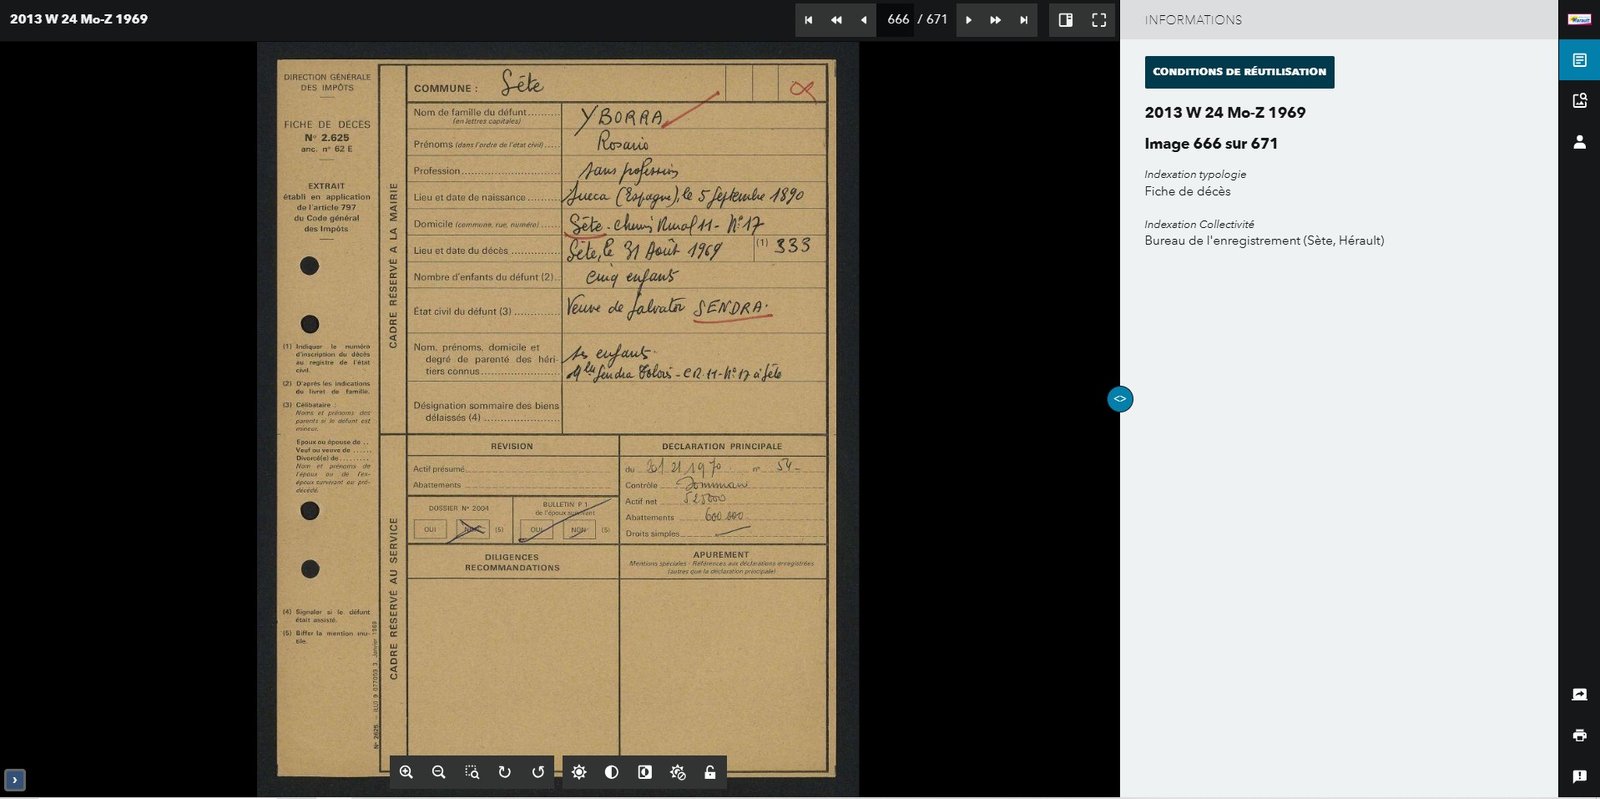 2013 W 24 Mo-Z 1969
666 / 671
INFORMATIONS
CONDITIONS DE RÉUTILISATION
2013 W 24 Mo-Z 1969
Image 666 sur 671
Indexation typologie
Fiche de décès
Indexation Collectivité
Bureau de l'enregistrement (Sète, Hérault)
DIRECTION GÉNÉRALE
DES IMPÔTS
FICHE DE DÉCÈS
N° 2.625
anc. n° 62 E
EXTRAIT
établi en application
de l'article 797
du Code général
des Impôts
(1) Indiquer le numéro
d'inscription du décès
au registre de l'état
civil.
(2) D'après les indications
du livret de famille.
(3) Célibataire :
Noms et prénoms des
parents si le défunt est
mineur.
Epoux ou épouse de ..
Veuf ou veuve de ......
Divorcé(e) de .........
Nom et prénoms de
l'époux ou de l'ex-
époux survivant ou pré-
décédé.
(4) Signaler si le défunt
était assisté.
(5) Biffer la mention inu-
tile.
CADRE RÉSERVÉ A LA MAIRIE
COMMUNE : Sète
Nom de famille du défunt YBORRA
(en lettres capitales)
Prénoms (dans l'ordre de l'état civil) Rosario
Profession sans profession
Lieu et date de naissance Sueca (Espagne), le 5 Septembre 1890
Domicile (commune, rue, numéro) Sète - Chemin Rural 11 - N° 17
Lieu et date du décès Sète, le 31 Août 1969 (1) 333
Nombre d'enfants du défunt (2) cinq enfants
État civil du défunt (3) Veuve de Salvator SENDRA.
Nom, prénoms, domicile et
degré de parenté des héri-
tiers connus
ses enfants.
Mlle Sendra - CR. 11 - N° 17 à Sète
Désignation sommaire des biens
délaissés (4)
CADRE RÉSERVÉ AU SERVICE
RÉVISION
Actif présumé
Abattements
DOSSIER N° 2004
OUI NON (5)
BULLETIN P 1
de l'époux survivant
OUI NON (5)
DÉCLARATION PRINCIPALE
du 1970 n° 54
Contrôle
Actif net 525000
Abattements 600.000
Droits simples
DILIGENCES
RECOMMANDATIONS
APUREMENT
Mentions spéciales - Références aux déclarations enregistrées
(autres que la déclaration principale)